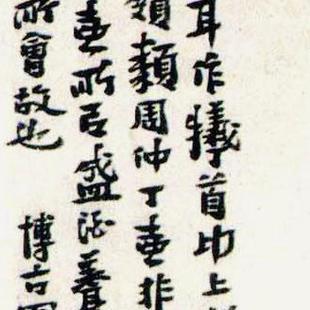 耳作犧首功上
類類周仲丁壺非
壺所以盛酒
所會故也 博古圖